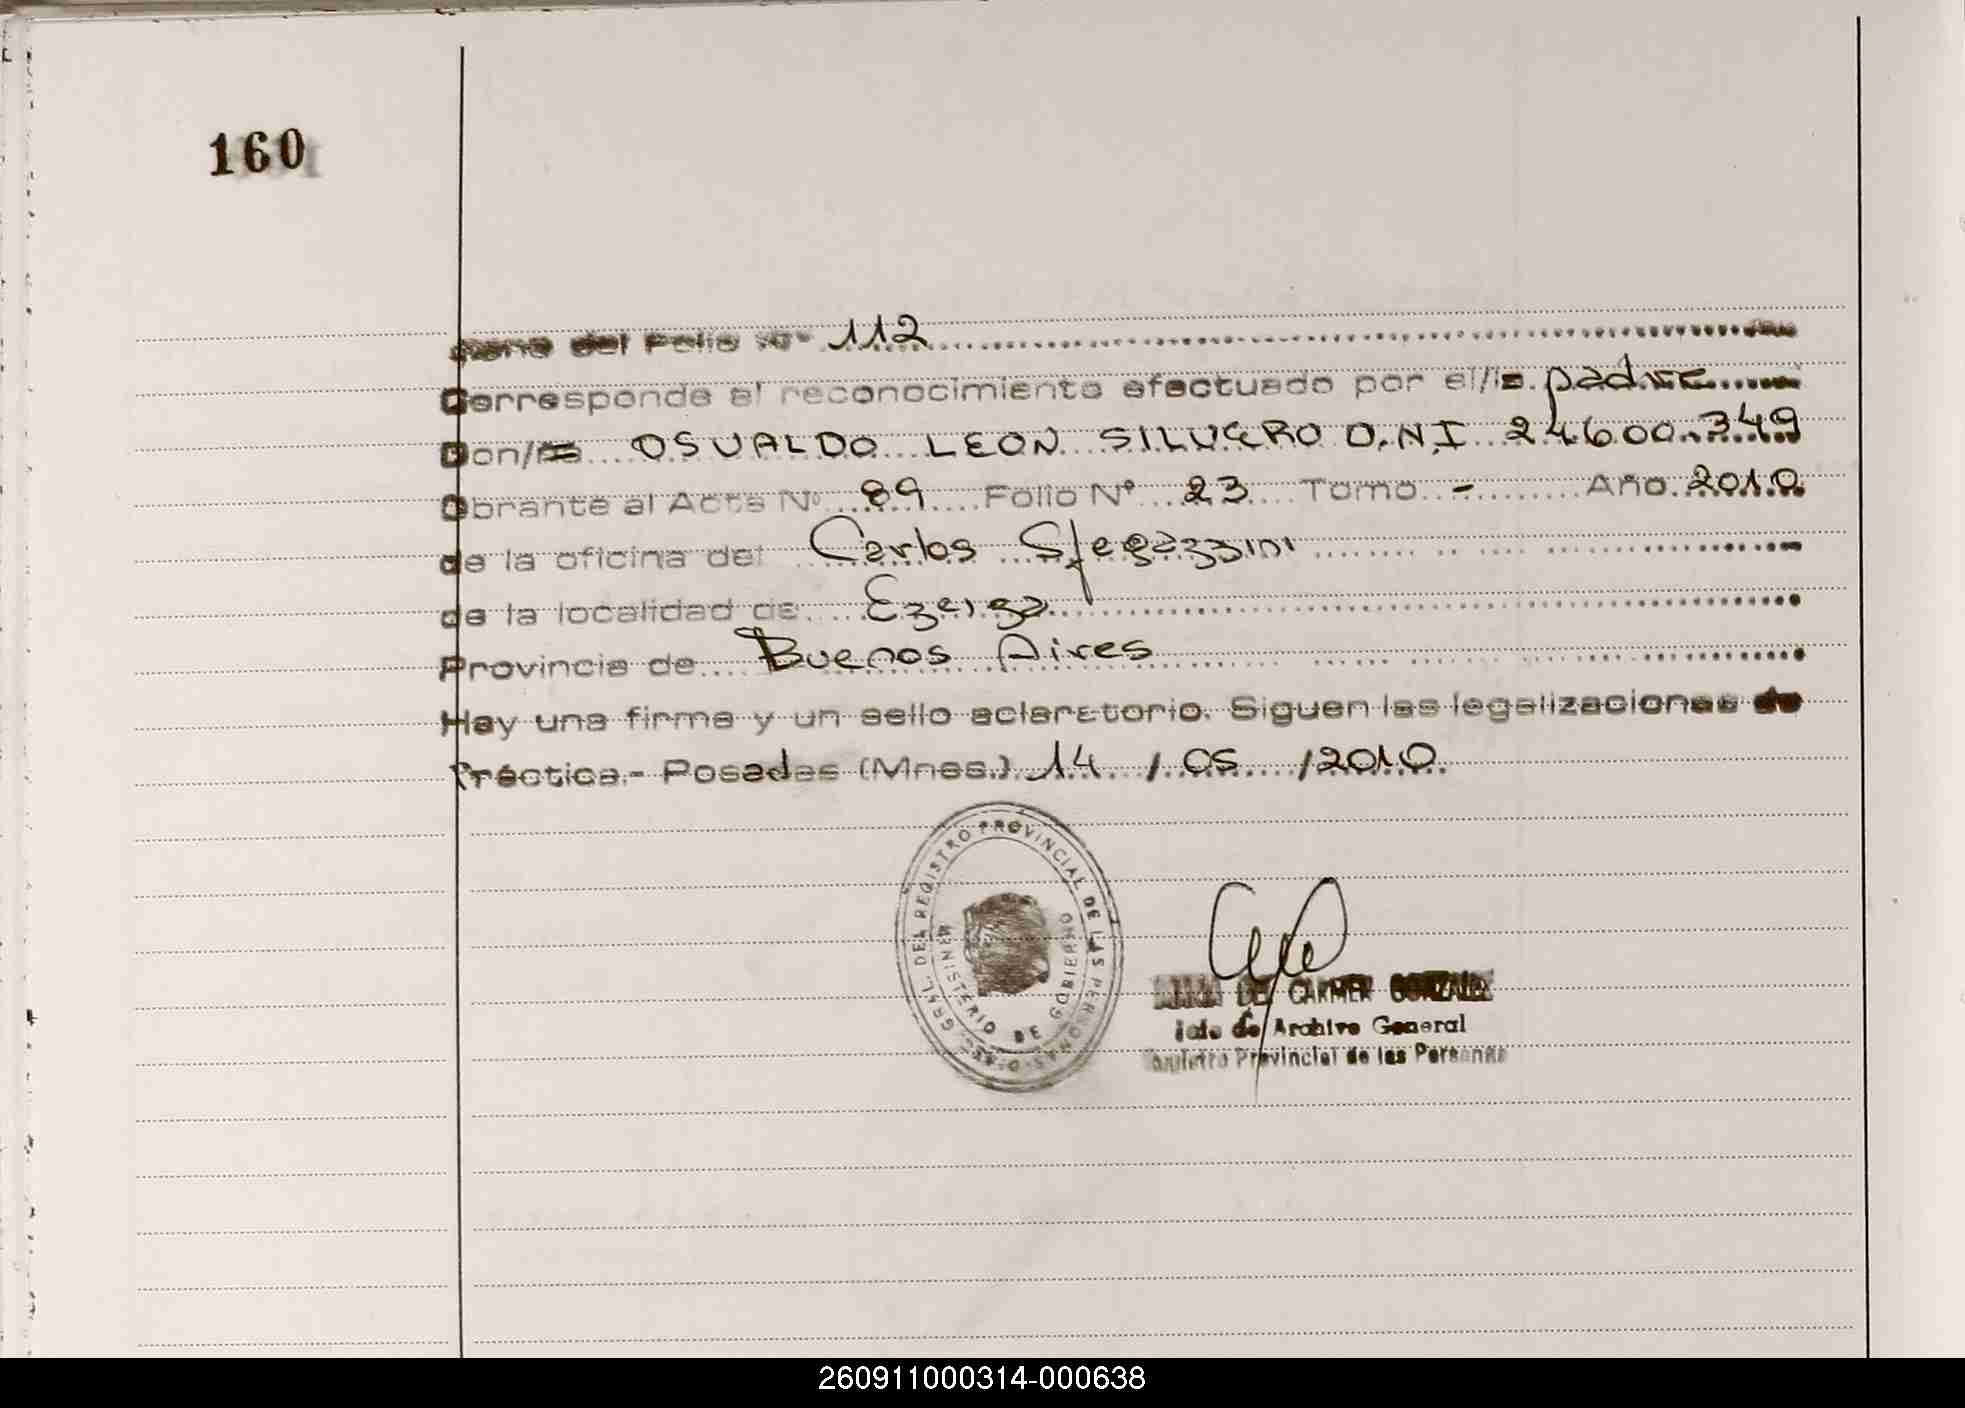 160
del Folio Nº 112
Corresponde al reconocimiento efectuado por el/la padre
Don/ña OSVALDO LEON SILVERO D.N.I 24600.349
Obrante al Acta Nº 89 Folio Nº 23 Tomo - Año 2010
de la oficina del Carlos Spegazzini
de la localidad de Ezeiza
Provincia de Buenos Aires
Hay una firma y un sello aclaratorio. Siguen las legalizaciones de
Práctica.- Posadas (Mnes.) 14 / 05 / 2010
GRAL. DEL REGISTRO PROVINCIAL DE LAS PERSONAS
MINISTERIO DE GOBIERNO
DEL CARMEN GONZALEZ
Jefe de Archivo General
Registro Provincial de las Personas
260911000314-000638